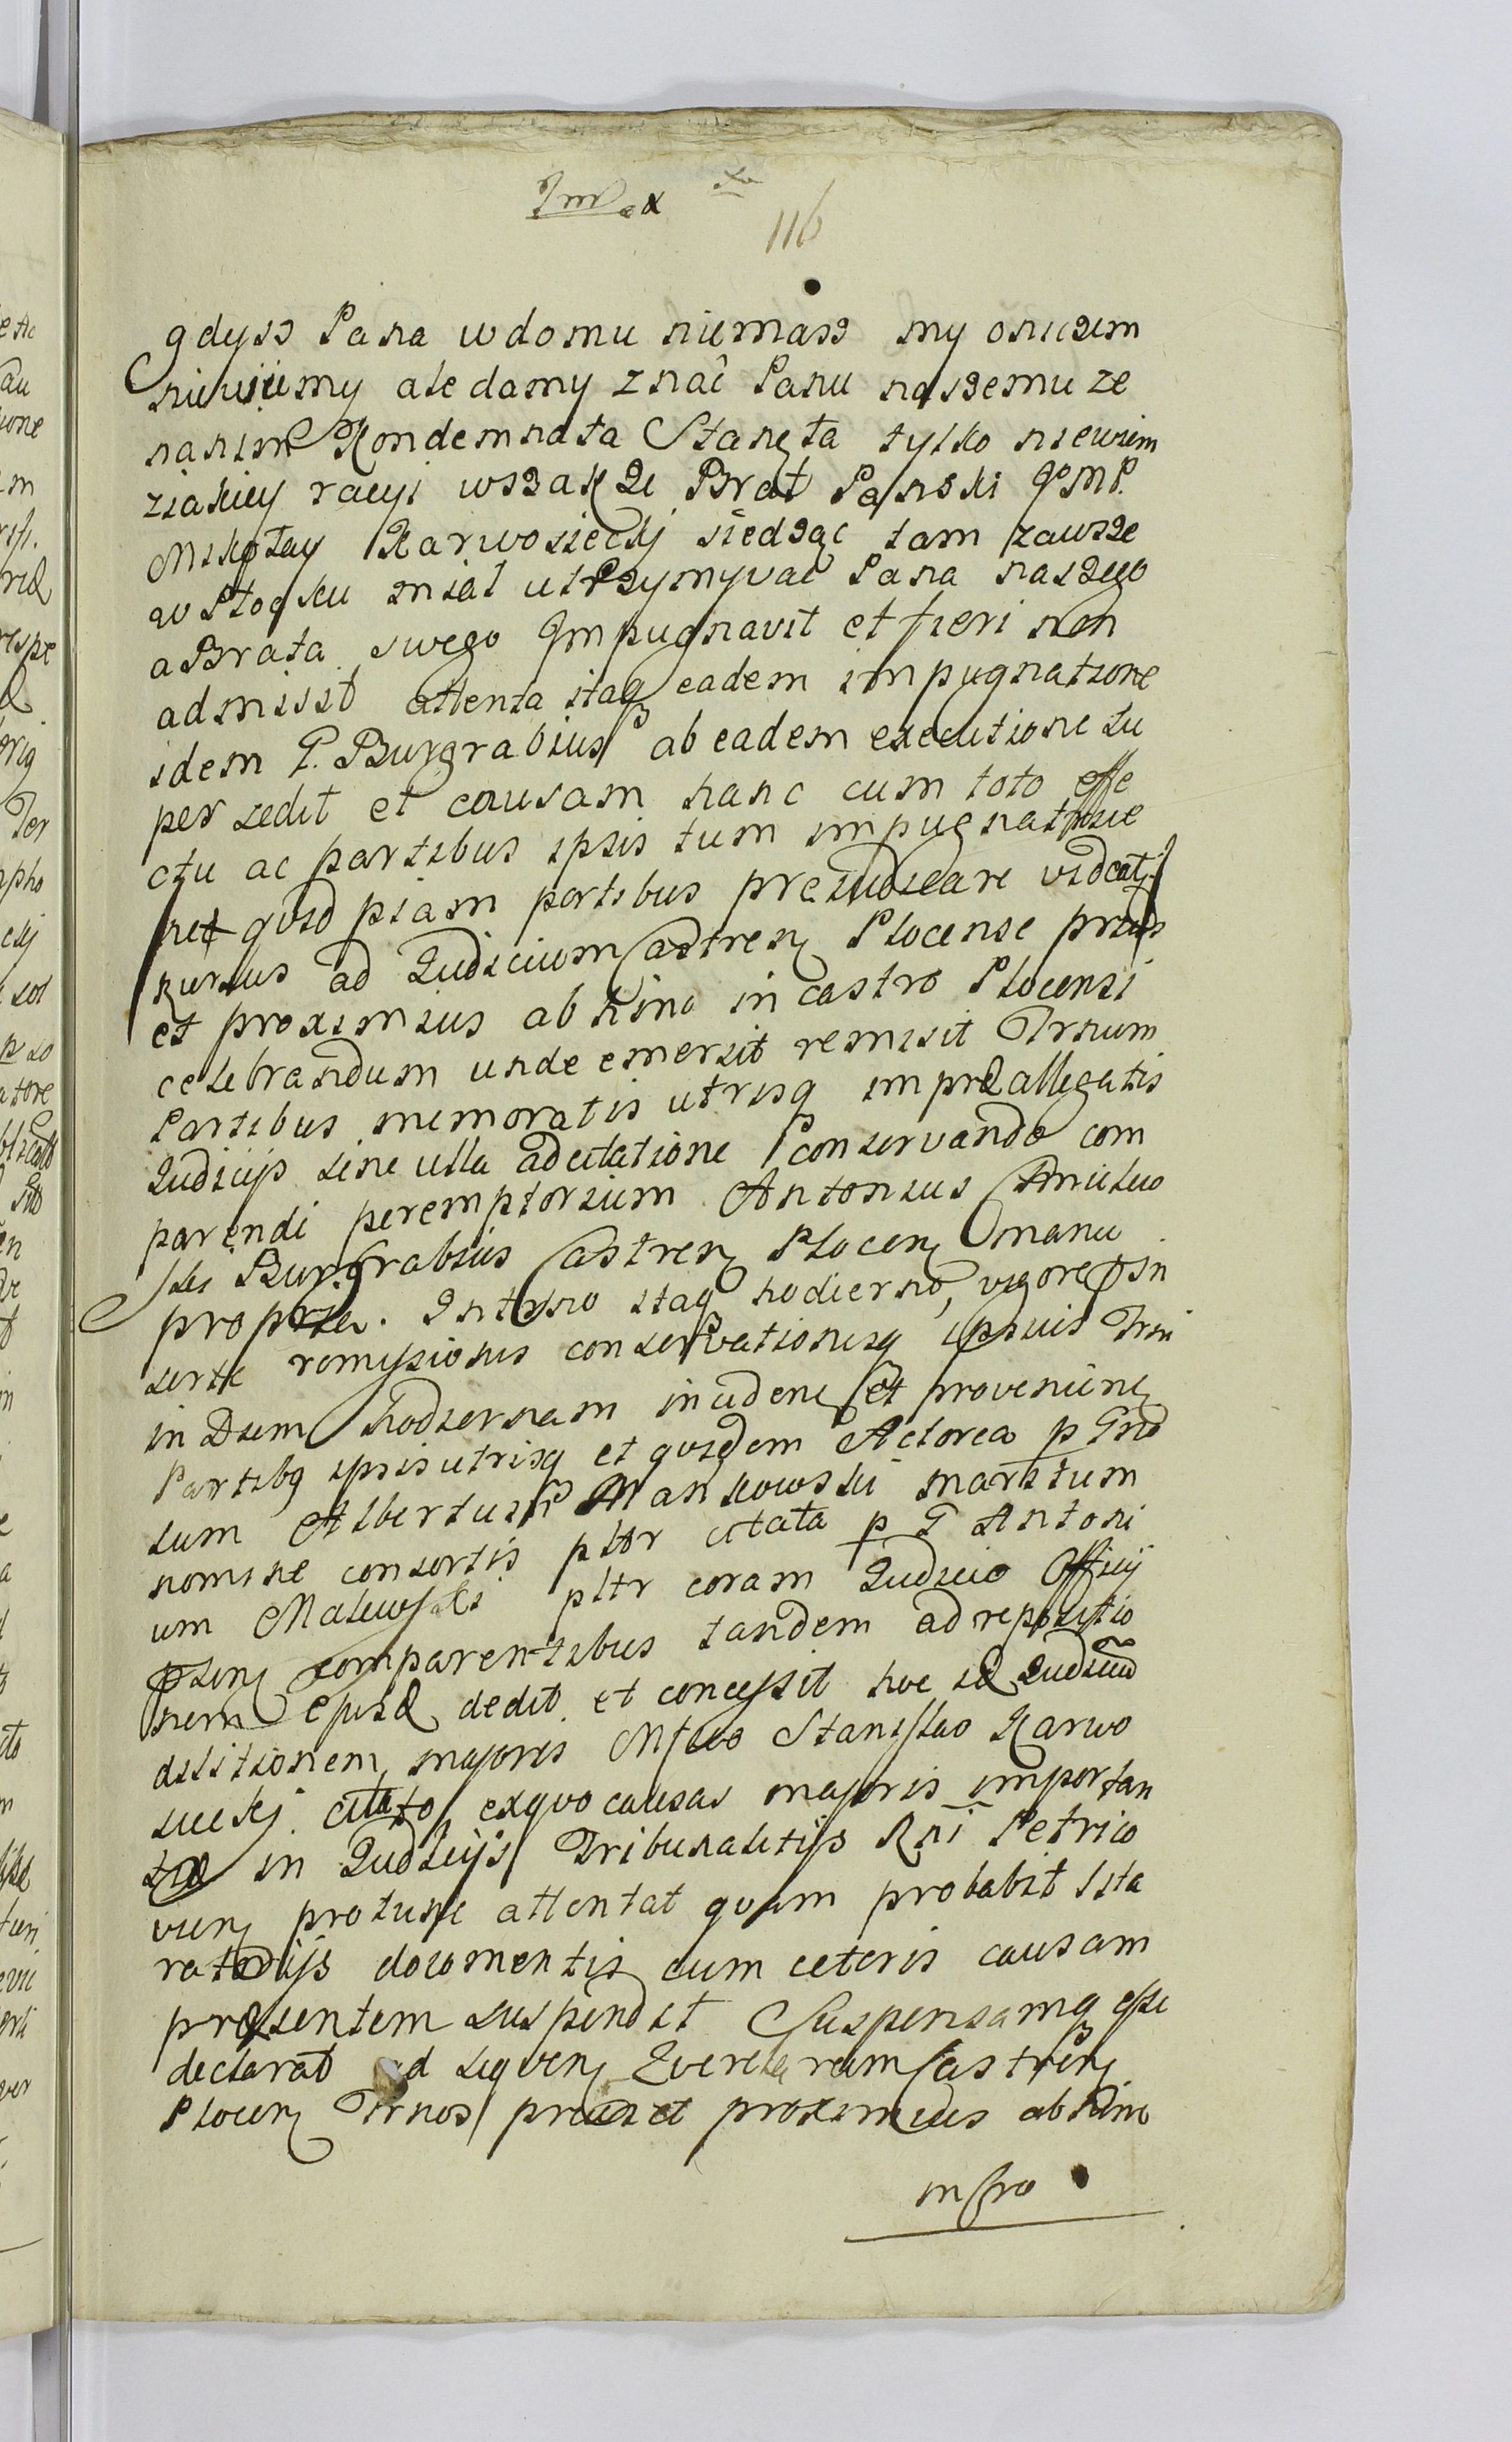 116
gdysz Pana wdomu niemasz my oniczem
niewiemy ale damy znać Panu naszemu ze
nanim Kondemnata Stanęta tylko niewiem
ziakiey racyi wszakze Brat Panski JoMP.
Mikołay Karwosieckj siedząc tam zawsze
w Płocku miał utrzymywac Pana naszego
a Brata swego Impugnavit et fieri non
admisit attenta itaq eadem impugnatione
idem G. Burgrabius ab eadem executione su
per sedit et causam hanc cum toto effe
ctu ac partibus ipsis tum impugnatione
ne quid piam partibus preiudicare videatj
rursus ad Judicium Castren Plocense prius
et proximius ab hinc in castro Plocensi
celebrandum unde emersit remisit Trnum
Partibus memoratis utrisq in præallegatis
Judicijs sine ulla adcitatione conservando com
parendi peremptorium Antonius
ski Burgrabius Castren Plocen manu
propria. In trno itaq hodierno, vigore in
serte remissionis conservationisq ipsius Trni
in Diem hodiernam inciden et provenien
Partibq ipsis utrisq et quidem Actorea p Gnd
sum Albertum Mankowski maritum
nomine consortis pltr citata p G Antoni
um Malewski pltr coram Judicio Officij
comparentibus tandem ad repositio
nem ejusd dedit et concessit hoc id Judicium
dilitionem majoris Mfco Stanislao Karwo
sieckj citato exquo causas majoris importan
tiæ in Judicijs Tribunalitijs Rni Petrico
vien protunc attentat quam probabit Iita
ratorijs documentis cum ceteris causam
præsentem suspendit Suspensamq esse
declarat ad sequen Querelarum Castren
Plocen Trnos prius et proximius ab hinc